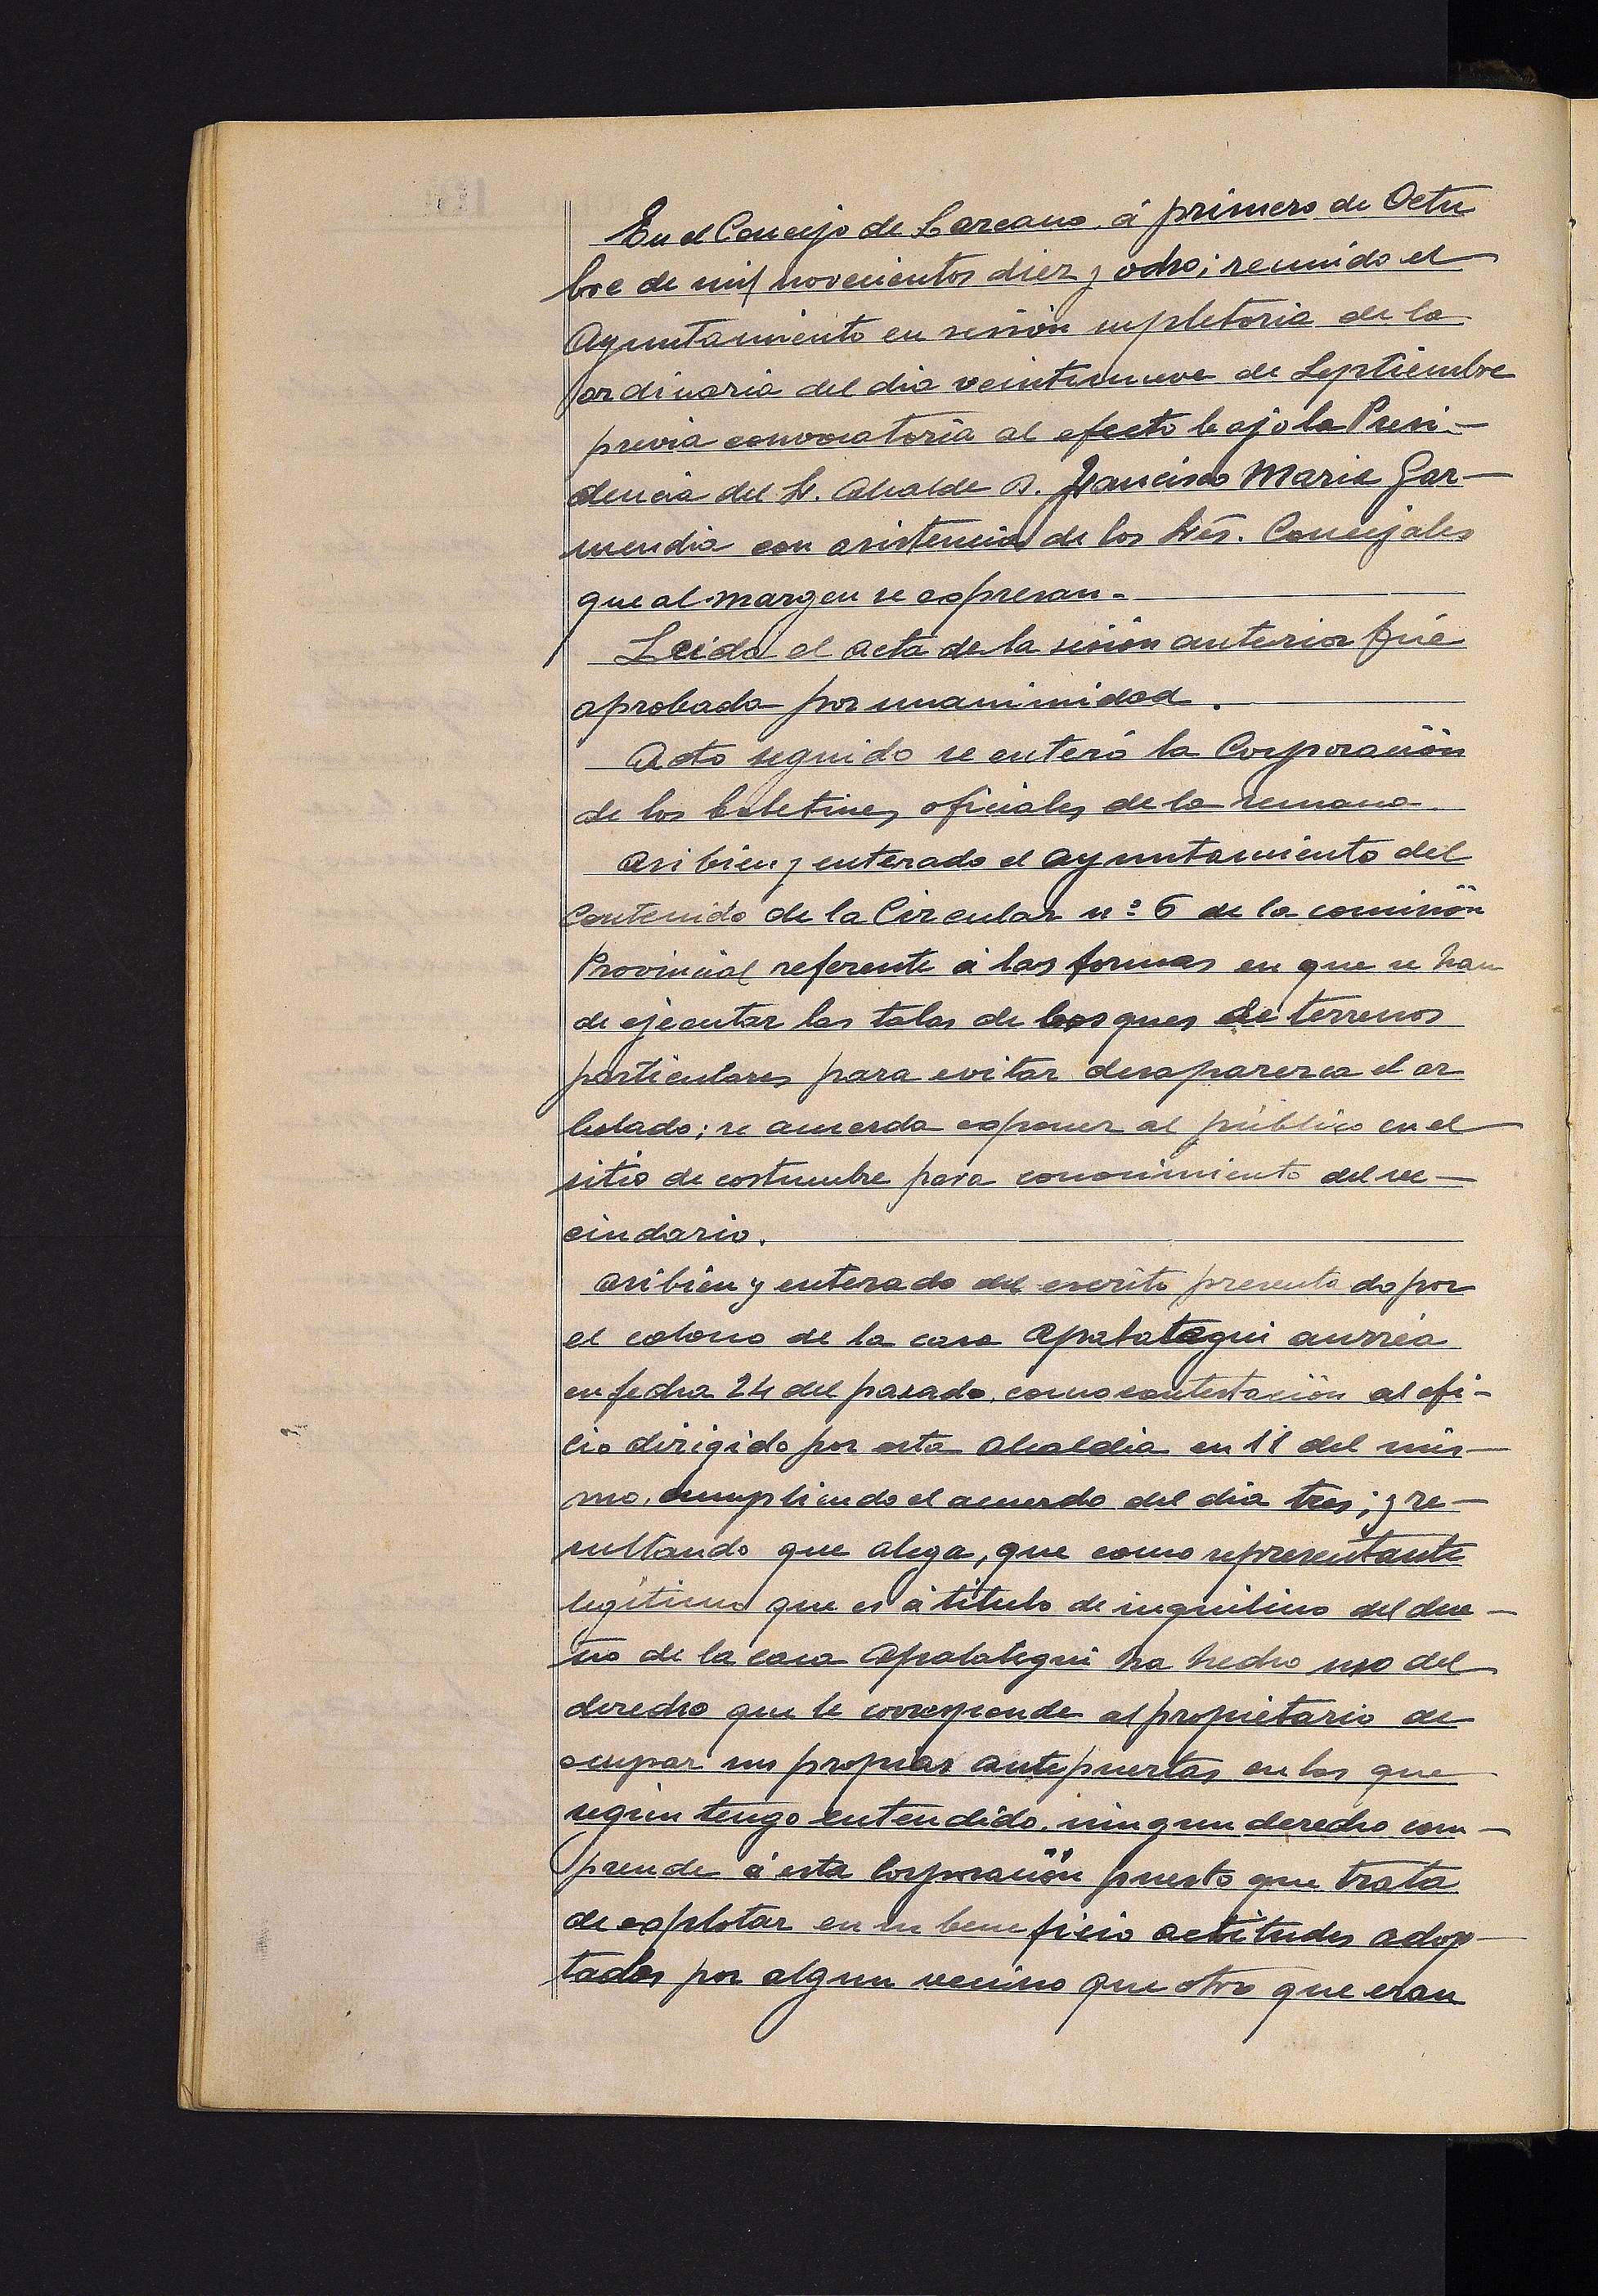 En el Concejo de Lazcano, á primero de Octu
bre de mil novecientos diez y ocho; reunido el
Ayuntamiento en sesión supletoria de la
ordinaria del dia veintinueve de Septiembre
previa convocatoria al efecto bajo la Presi-
dencia del Sr. Alcalde D. Francisco Maria Gar-
mendia con asistencia de los Sres. Concejales
que al margen se expresan.-
Leida el acta de la sesión anterior fué
aprobada por unanimidad.
Acto seguido se enteró la Corporación
de los boletines oficiales de la semana
Asi bien y enterado el ayuntamiento del
Contenido de la Circular nº 6 de la comisión
Provincial referente á las formas en que se han
de ejecutar las talas de bosques de terrenos
particulares para evitar desaparezca el ar
bolado; se acuerda exponer al público en el
sitio de costumbre para conocimiento del ve-
cindario.
Asi bien y enterado del escrito presentado por
el colono de la casa Apalategui aurrea
en fecha 24 del pasado, como contestación al ofi-
cio dirigido por esta Alcaldia en 11 del mis-
mo, cumpliendo el acuerdo del dia tres; y re-
sultando que alega, que como representante
legítimo que es á título de inquilino del due-
ño de la casa Apalategui ha hecho uso del
derecho que le corresponde al propietario de
ocupar sus propias antepuertas en las que
según tengo entendido, ningun derecho com-
prende á esta Corporación puesto que trata
de explotar en su beneficio actitudes adop-
tadas por algun vecino que otro que eran